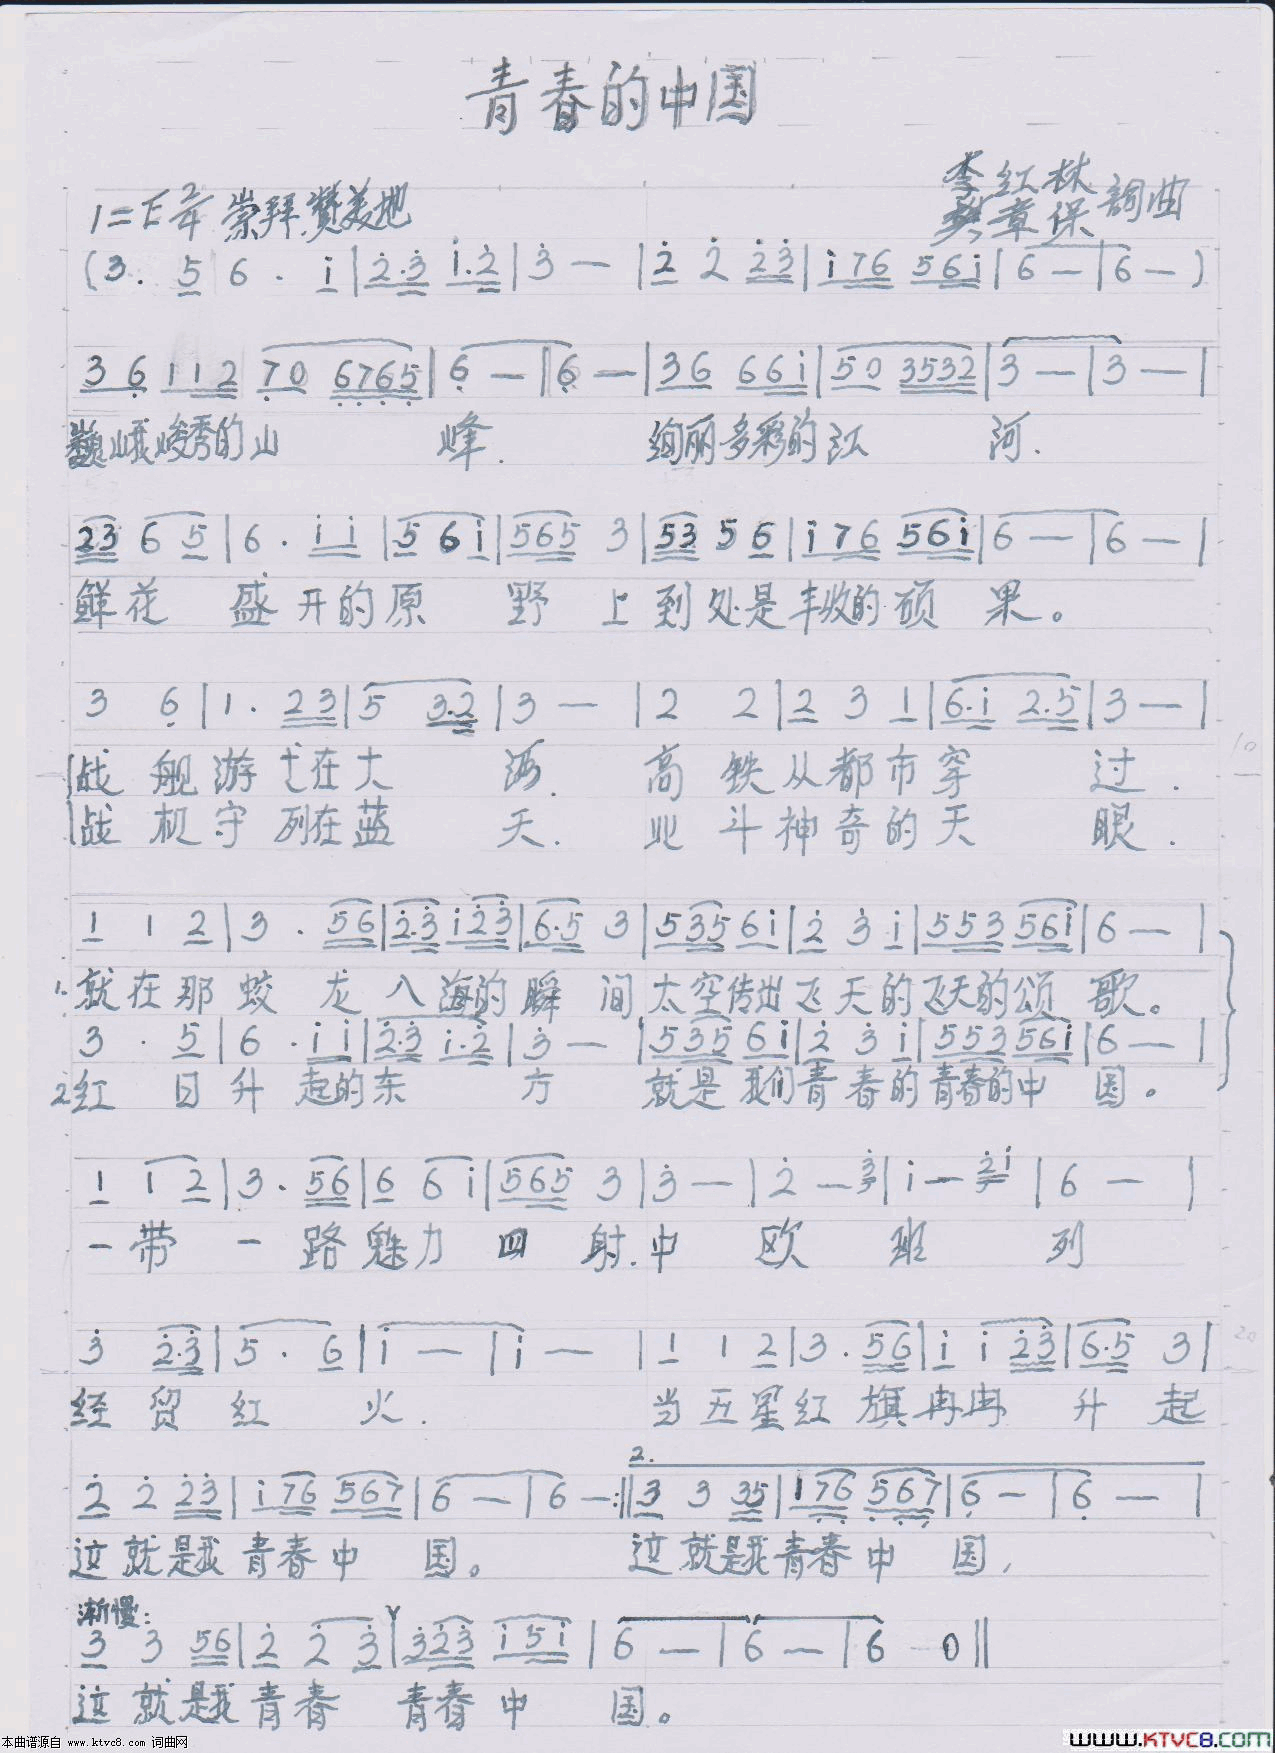 青春的中国
李红林
樊章保 詞曲
1=E 2/4 崇拜.赞美地
(3. 5 | 6 . i | 2.3 i.2 | 3 — | 2 2 23 | i76 56i | 6 — | 6 — )
36 112 70 6765 | 6 — | 6 — | 36 66i | 50 3532 | 3 — | 3 — |
巍峨峻秀的山 峰. 绚丽多彩的江 河.
23 6 5 | 6 . i i | 5 6 i | 565 3 | 53 5 6 | i76 56i | 6 — | 6 — |
鲜花 盛开的原 野上到处是丰收的硕果。
3 6 | 1 . 23 | 5 3.2 | 3 — | 2 2 | 2 3 1 | 6.i 2.5 | 3 — |
战舰游弋在大 海. 高铁从都市穿 过.
战机守列在蓝 天. 北斗神奇的天 眼.
1 1 2 | 3 . 56 | 2.3 i23 | 6.5 3 | 535 6i | 2 3 i | 553 56i | 6 — |
1.就在那蛟龙入海的瞬间太空传出飞天的飞天的颂歌。
3 . 5 | 6 . i i | 2.3 i.2 | 3 — | 535 6i | 2 3 i | 553 56i | 6 — |
2.红日升起的东 方 就是我们青春的青春的中国。
1 i 2 | 3 . 56 | 6 6 i | 565 3 | 3 — | 2 — 3 | i — 2i | 6 — |
一带一路魅力四射.中欧班列
3 2.3 | 5 . 6 | i — | i — | 1 1 2 | 3 . 56 | i i 23 | 6.5 3 |
经贸红火. 当五星红旗冉冉升起
2.
2 2 23 | i76 567 | 6 — | 6 — :|| 3 3 35 | 176 567 | 6 — | 6 — |
这就是我青春中 国。 这就是我青春中 国,
渐慢:
3 3 56 | 2 2 3 | 323 i5i | 6 — | 6 — | 6 0 ||
这就是我青春 青春中 国。
本曲谱源自 www.ktvc8.com 词曲网
www.KTVC8.com